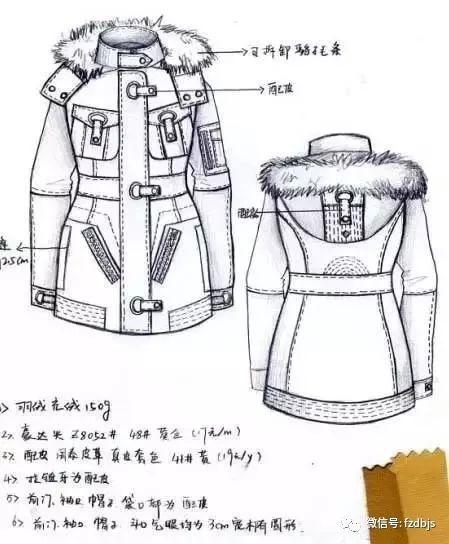 可拆卸毛条
配皮
配皮
2.5cm
1> 羽绒充绒150g
2> Z8052# 48# 黄色 (17元/m)
3> 配皮 皮革 真皮套色 41#黄
4> 拉链牙为配皮
5> 前门、袖口、帽子、袋口都为配皮
6> 前门、袖口、帽子、气眼均为3cm宽椭圆形.
微信号: fzdbjs